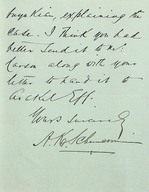 explaining the
Case. I think you had
better send it to Mr.
Carson along with your
letter to hand it to
Yours sincerely